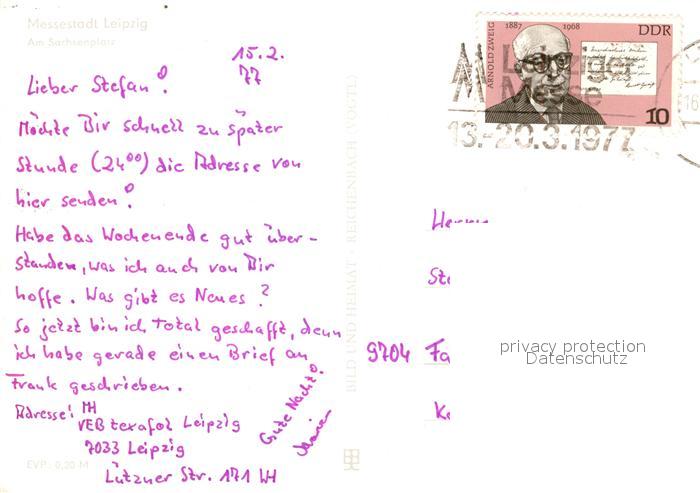 Messestadt Leipzig
Am Sachsenplatz
15.2.
77
Lieber Stefan!
Möchte Dir schnell zu später
Stunde (24⁰⁰) die Adresse von
hier senden!
Habe das Wochenende gut über-
standen, was ich auch von Dir
hoffe. Was gibt es Neues?
So jetzt bin ich total geschafft, denn
ich habe gerade einen Brief an
Frank geschrieben.
Adresse!
VEB texafol Leipzig
7033 Leipzig
Lützner Str. 171 WH
Gute Nacht!
EVP: 0,20 M
BILD UND HEIMAT · REICHENBACH (VOGTL)
ARNOLD ZWEIG 1887 1968
DDR
10
Leipziger
Messe
13.-20.3.1977
9704 Fa
privacy protection
Datenschutz